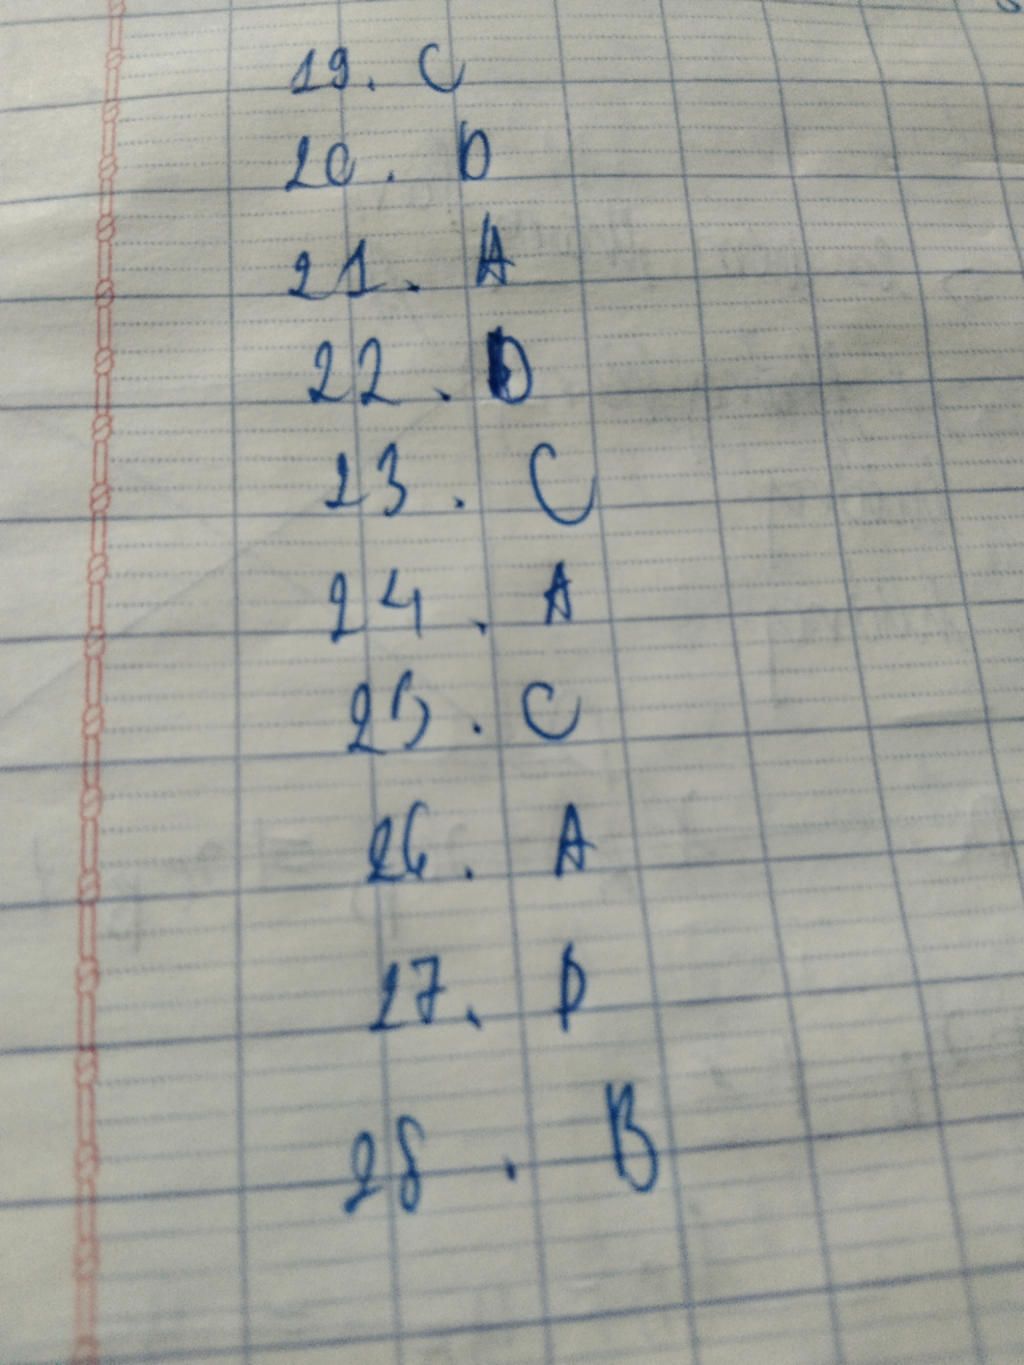 19. C
20. D
21. A
22. D
23. C
24. A
25. C
26. A
27. D
28. B